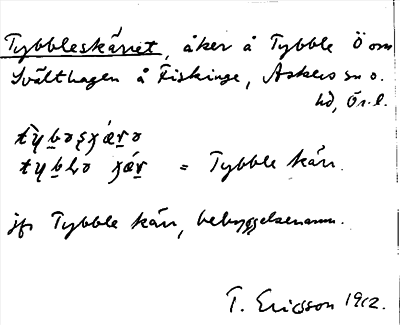 Tybbleskärret, åker å Tybble Ö om
Svälthagen å Fiskinge, Askers sn o.
hd, Ör. l.
= Tybble kärr.
jfr Tybble kärr, bebyggelsenamn.
T. Ericsson 1912.